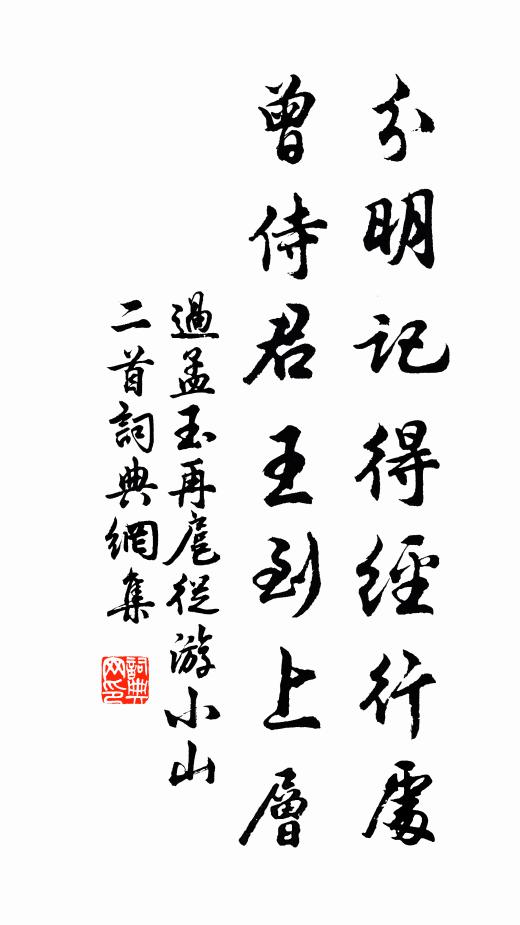 分明記得經行處
曾侍君王到上層
過孟玉再扈從游小山
二首詞典網集
詞典
网印